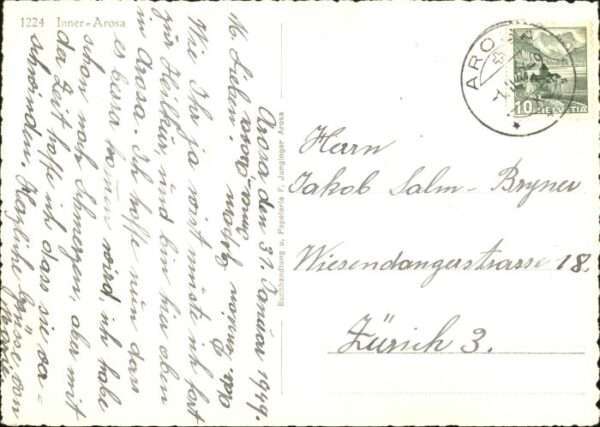 1224 Inner-Arosa
Arosa den 31. Januar 1949.
M. Lieben!
Wie Ihr ja wisst musste ich fort
zur Heilkur, und bin hier oben
in Arosa. Ich hoffe nun dass
es besser kommen wird ich habe
schon noch Schmerzen, aber mit
der Zeit hoffe ich dass sie ver-
schwinden. Herzliche Grüsse von
Buchhandlung u. Papeterie F. Junginger Arosa
AROSA
10 HELVETIA
Herrn
Jakob Salm-Bryner
Wiesendangerstrasse 18.
Zürich 3.